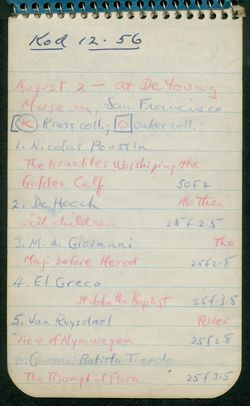 Kod 12.56
August 2 — at De Young
Museum, San Francisco
K Kress coll.; O other coll.
1. Nicolas Poussin
The Israelites Worshiping the
Golden Calf 5 of 2
2. De Hooch Mother
with children 25 f 2.5
3. M. di Giovanni The
Magi before Herod 25 f 2.8
4. El Greco
St John the Baptist 25 f 3.5
5. Van Ruysdael River
View of Nymwegen 25 f 2.8
6. Giovanni Batista Tiepolo
The Triumph of Flora 25 f 3.5